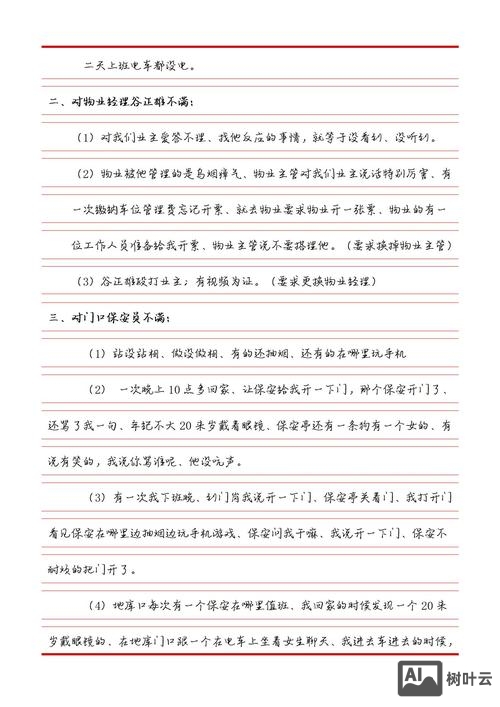 二天上班电车都没电。
二、对物业经理谷正雄不满;
(1)对我们业主爱答不理、找他反应的事情,就等于没看到、没听到。
(2)物业被他管理的是乌烟瘴气、物业主管对我们业主说话特别厉害、有
一次缴纳车位管理费忘记开票、就去物业要求物业开一张票、物业的有一
位工作人员准备给我开票、物业主管说不要搭理他。(要求换掉物业主管)
(3)谷正雄殴打业主;有视频为证。(要求更换物业经理)
三、对门口保安员不满;
(1)站没站相、做没做相、有的还抽烟、还有的在哪里玩手机
(2) 一次晚上10点多回家、让保安给我开一下门,那个保安开门了、
还骂了我一句、年纪不大20来岁戴着眼镜、保安亭还有一条狗有一个女的、有
说有笑的,我说你骂谁呢、他没吭声。
(3)有一次我下班晚、到门岗我说开一下门、保安亭关着门、我打开门
看见保安在哪里边抽烟边玩手机游戏、保安问我干嘛、我说开一下门、保安不
耐烦的把门开了。
(4)地库口每次有一个保安在哪里值班、我回家的时候发现一个20来
岁戴眼镜的、在地库门口跟一个在电车上坐着女生聊天、我进去车进去的时候,
AI
树叶云